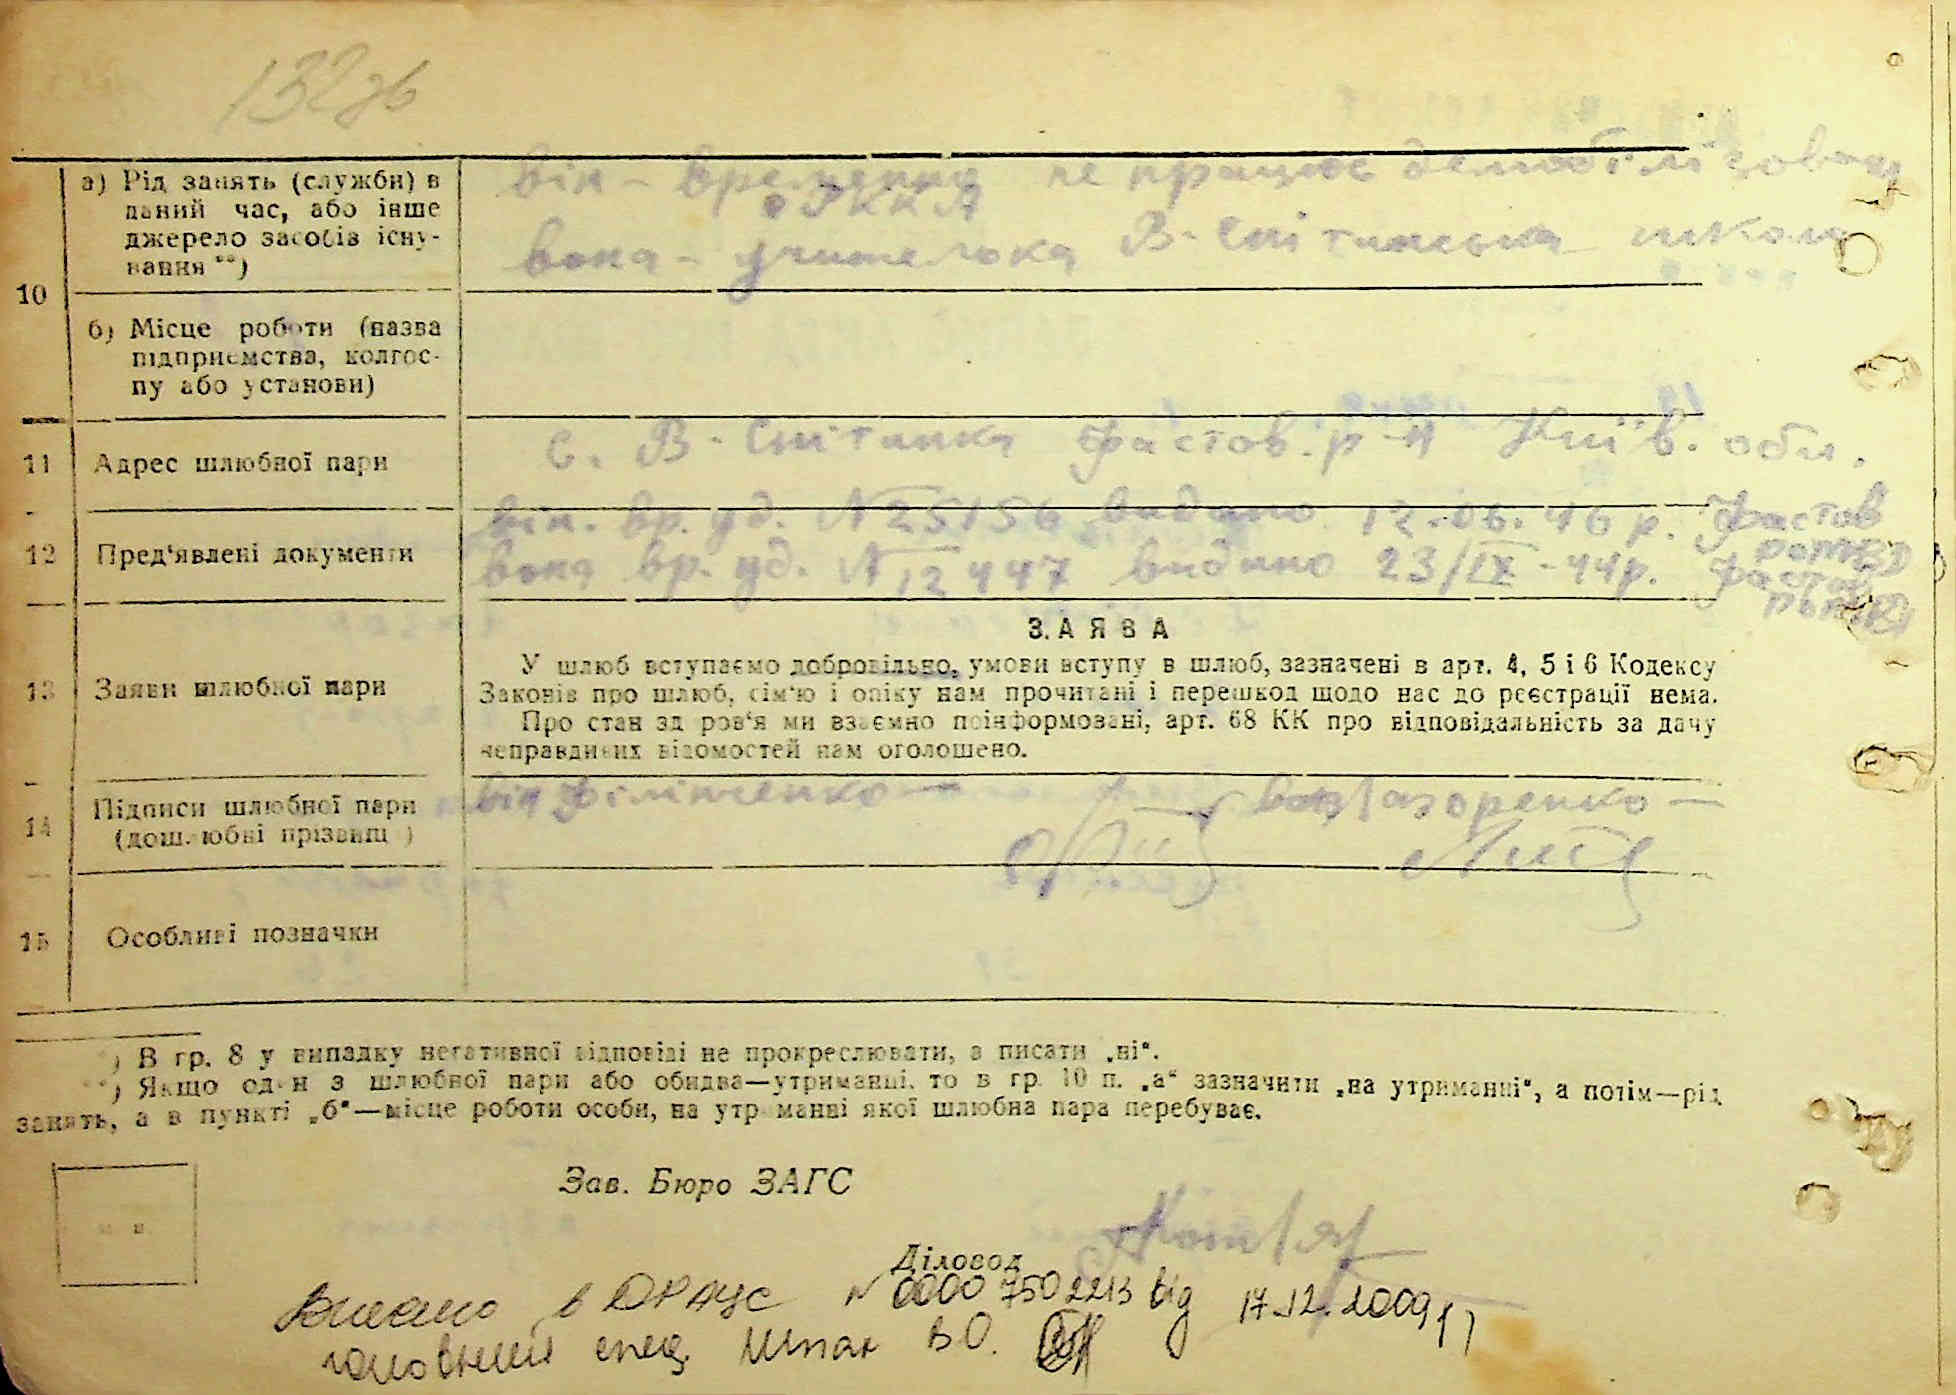 132зв
10
а) Рід занять (служби) в
даний час, або інше
джерело засобів існу-
вання **)
він - временно не працює демобілізован
з РККА
вона - учителька В-Снітинська школа
б) Місце роботи (назва
підприємства, колгос-
пу або установи)
11 Адрес шлюбної пари
с. В-Снітинка Фастов. р-н Київ. обл.
12 Пред'явлені документи
він. вр. уд. № 25156 видано 12.06.46 р. Фастов
РОМВД
вона вр. уд. № 12447 видано 23/IX-44р. Фастов
13 Заяви шлюбної пари
ЗАЯВА
У шлюб вступаємо добровільно, умови вступу в шлюб, зазначені в арт. 4, 5 і 6 Кодексу
Законів про шлюб, сім'ю і опіку нам прочитані і перешкод щодо нас до реєстрації нема.
Про стан здоров'я ми взаємно поінформовані, арт. 68 КК про відповідальність за дачу
неправдивих відомостей нам оголошено.
14 Підписи шлюбної пари
(дошлюбні прізвищ)
він Філінченко — вона Лазоренко —
15 Особливі позначки
*) В гр. 8 у випадку негативної відповіді не прокреслювати, а писати „ні“.
**) Якщо один з шлюбної пари або обидва—утриманці, то в гр. 10 п. „а“ зазначити „на утриманні“, а потім—рід
занять, а в пункті „б“—місце роботи особи, на утриманні якої шлюбна пара перебуває.
Зав. Бюро ЗАГС
Діловод
Внесено в ДРАЦС № 00007502213 від 17.12.2009р
головний спец. Шпак В О.